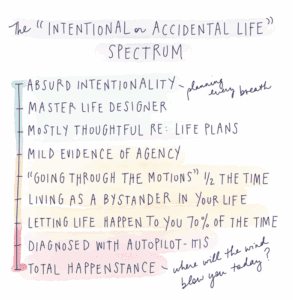 The "INTENTIONAL or ACCIDENTAL LIFE"
SPECTRUM
ABSURD INTENTIONALITY ~ planning every breath
MASTER LIFE DESIGNER
MOSTLY THOUGHTFUL RE: LIFE PLANS
MILD EVIDENCE OF AGENCY
"GOING THROUGH THE MOTIONS" 1/2 THE TIME
LIVING AS A BYSTANDER IN YOUR LIFE
LETTING LIFE HAPPEN TO YOU 70% OF THE TIME
DIAGNOSED WITH AUTOPILOT-ITIS
TOTAL HAPPENSTANCE ~ where will the wind
blow you today?